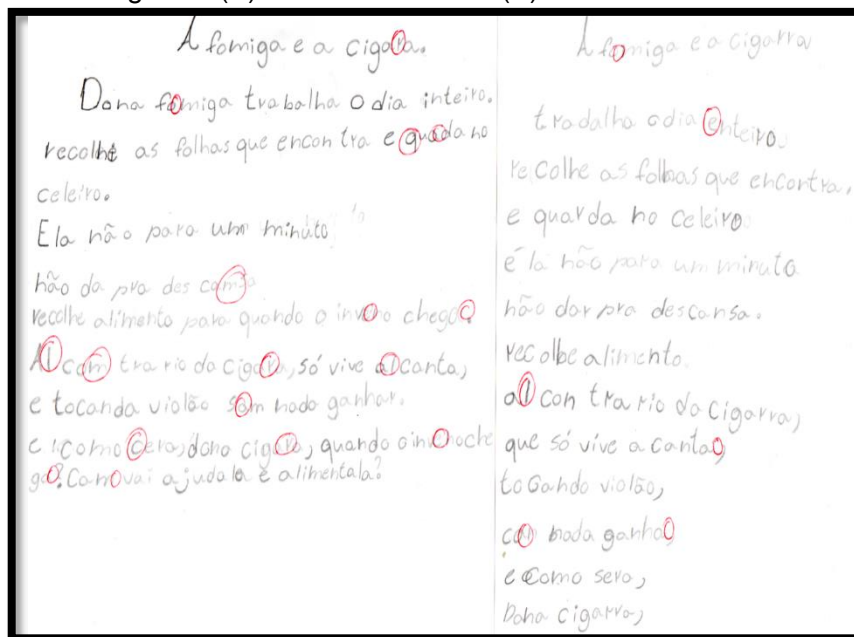 A fomiga e a cigara.
Dona fomiga trabalha o dia inteiro.
recolhe as folhas que encontra e guada no
celeiro.
Ela não para um minuto
não da pra des
recolhe alimento para quando o inveno chega
Al com trario da cigara, só vive al canta,
e tocanda violão som nada ganhar.
e como cera, dona cigara, quando o inveno che
ga? vai ajudala e alimentala?
A fomiga e a cigarra
tradalha o dia enteiro.
recolhe as folhas que encontra,
e guarda no celeiro
é la não para um minuto
não dar pra descansa.
recolbe alimento.
al con trario da cigarra,
que só vive a canta
togando violão,
nada ganha
e como sera,
Dona cigarra,